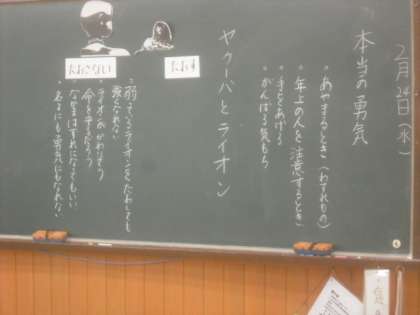 2月24日(水)
本当の勇気
・あやまるとき(わすれもの)
・年上の人を注意するとき
・手をあげる
・がんばる気もち
ヤクーバとライオン
たおす
たおさない
・弱っているライオンをたおしても
勇気になれない
・ライオンがかわいそう
命を守るだろう
・なかまはずれになってもいい
名よにも勇気にもなれない